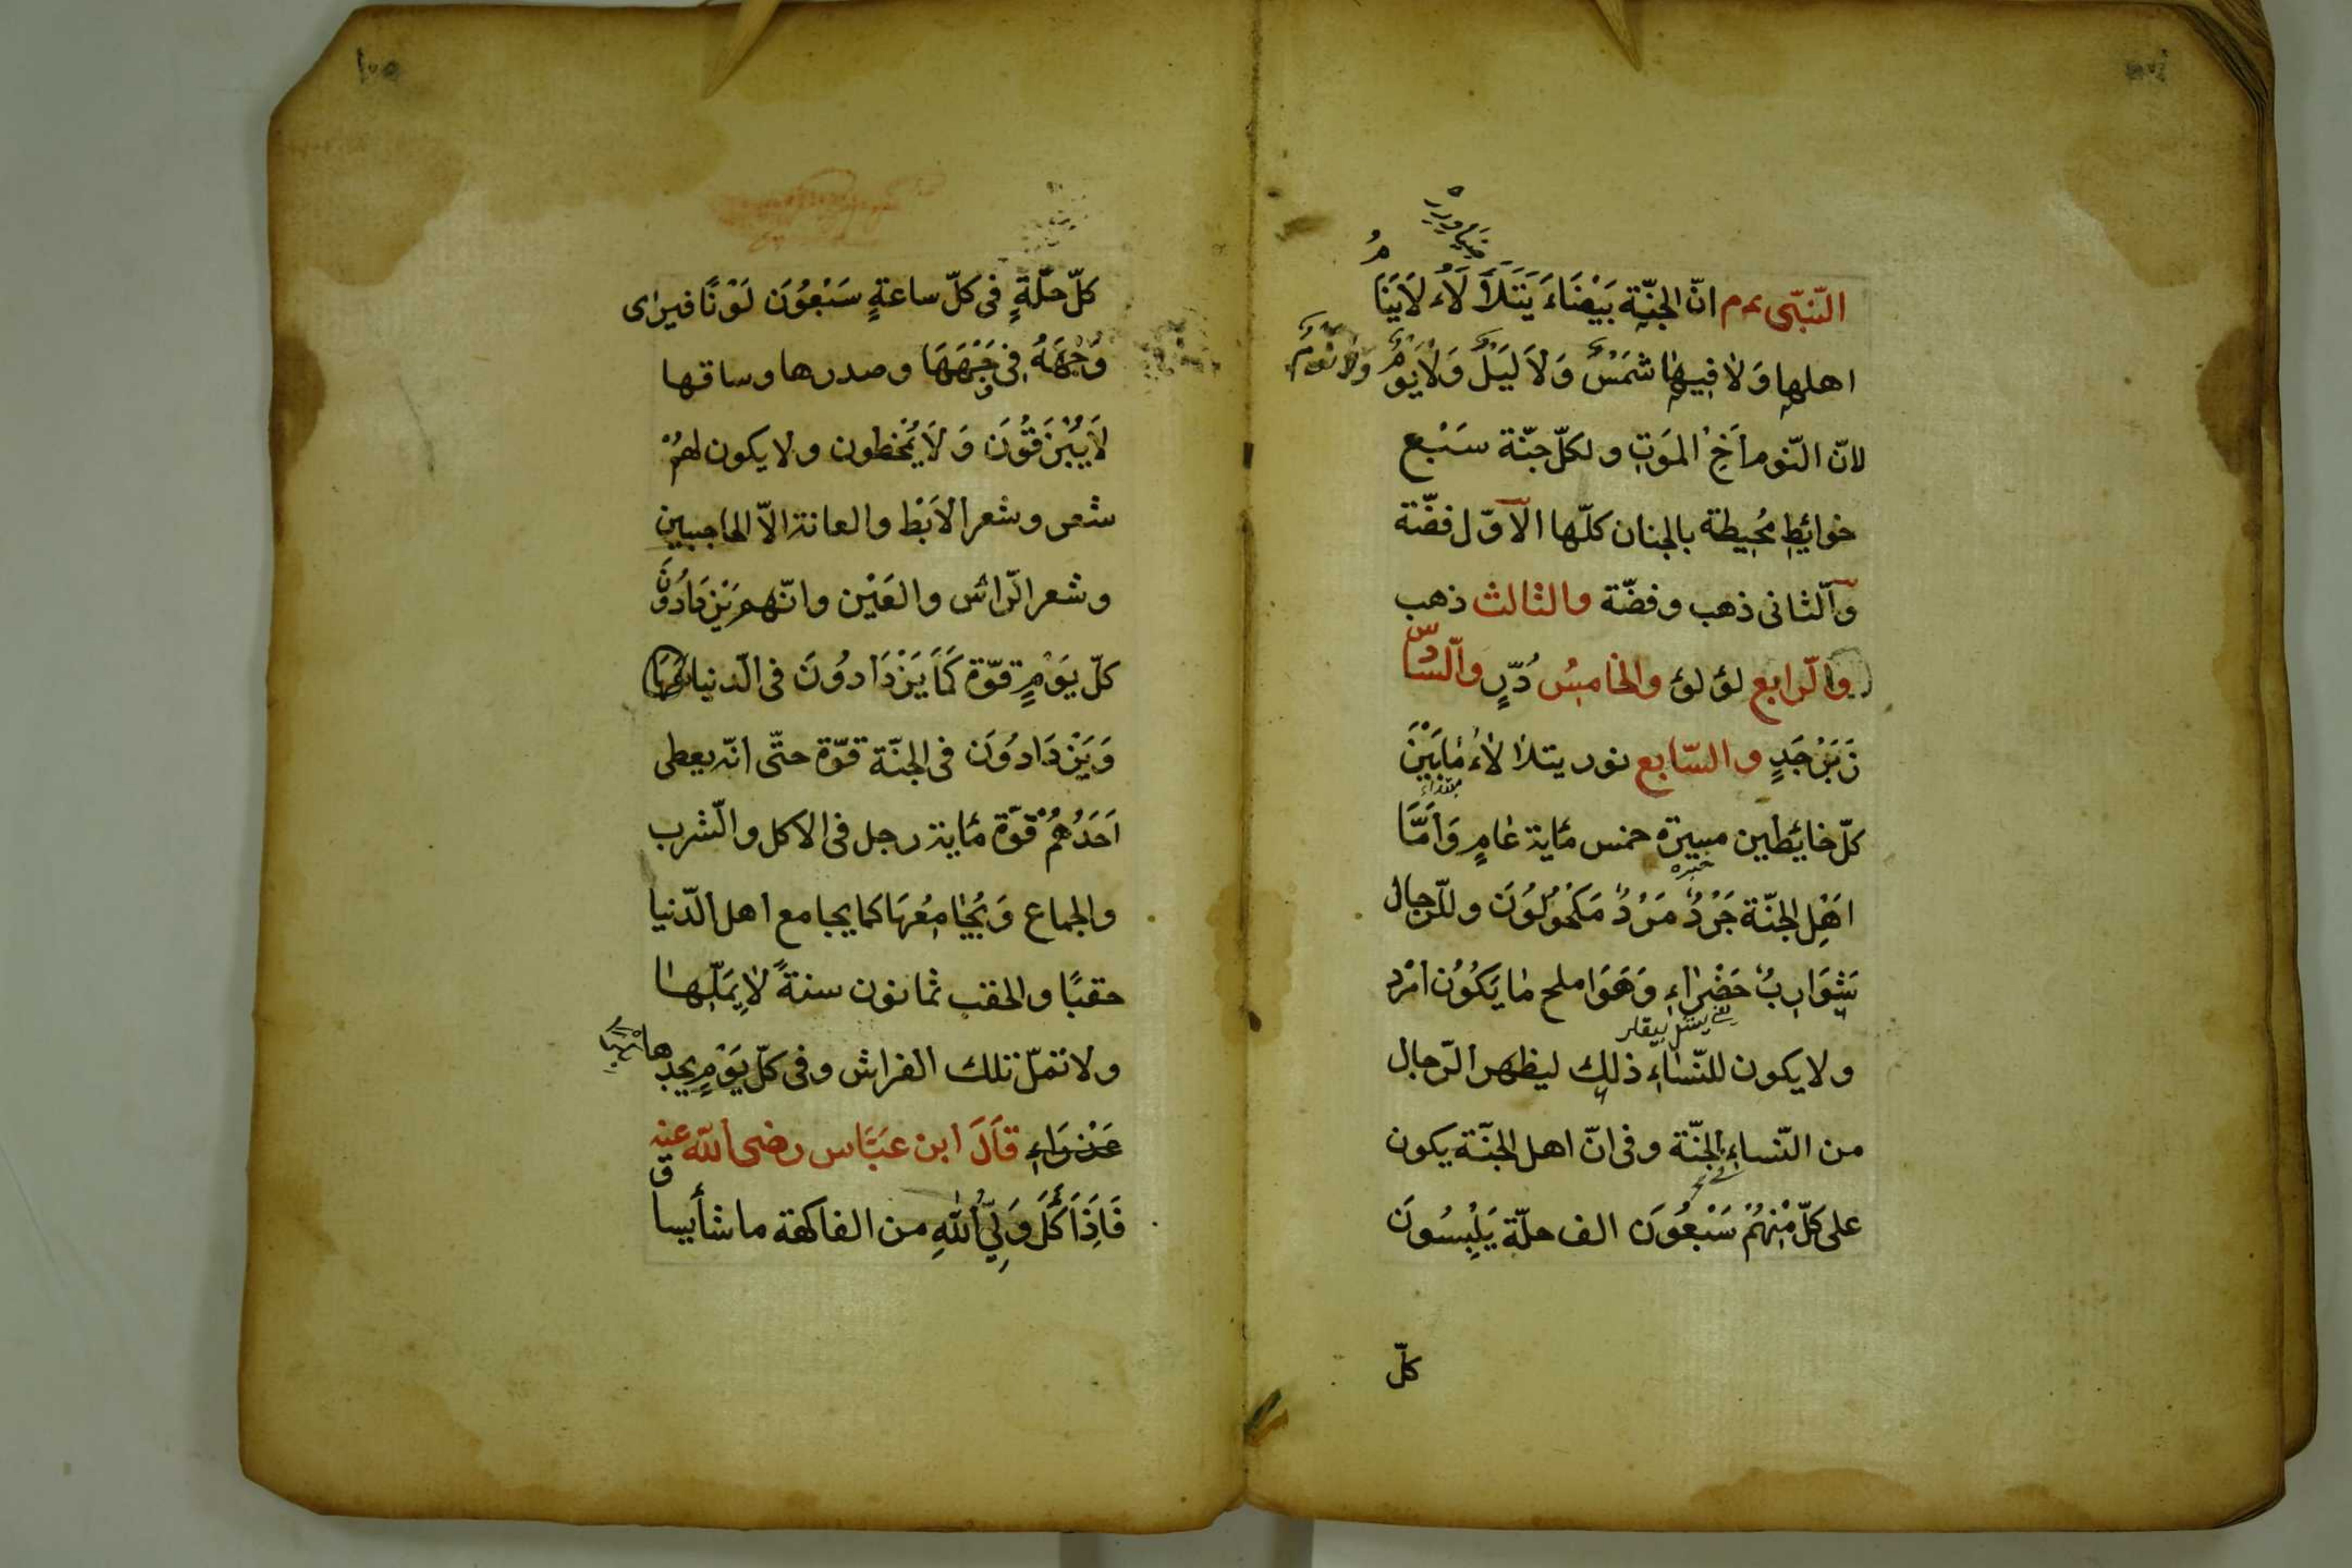 النّبّى عم انّ الجنّة بَيْضَاءَ يَتَلَأْلَاءُ لَايَنَامُ
اهلها وَلا فيها شَمْسٌ وَلَا لَيْلٌ وَلَا نَوْمٌ
لانّ النّوم اَخِ الْمَوَتِ ولكلّ جنّة سَبْع
حَوايُطِ مُحِيطة بالجنان كلّها الآوّل فضّة
وآلّثانى ذهب وفضّة والثالث ذهب
والّرابع لؤلؤ والخامِسُ دُرِّ والّسادس
زَبَرْجَدٍ والسّابع نور يتلالاءُ مَابَيْنَ
كلّ حايُطين مسيرة خمس مايُة عَامٍ وَاَمَّا
اَهْلِ الجنّة جَرْدٌ مَرْدٌ مَكْحُولُوَن وللرّجال
شَوَارِبٌ خَضْرَاءِ وَهَوَا ملح مَا يَكُوُن امْرد
ولا يكون للنّساءِ ذلِك ليظهر الرّجال
من النّساءِ الجنّة وفى انّ اهل الجنّة يكون
على كلّ مِنْهُمْ سَبْعُوَن الف حلّة يَلْبِسُونَ
كلّ
١٠٥
كلّ حلّةٍ فى كلّ ساعةٍ سَبْعُوَن لَوْنًا فيراى
وَجْهَهُ فِى وَجْهَهَا وصدرها وساقها
لَايُبْزَقُوَن وَلَا يُمْخطون ولا يكون لهمْ
شعر وشعر الاَبْط والعانة الاّ الحاجبين
وشعر الّراس والعَيْن وانّهم يَزْدَادُوَن
كلّ يَوْمٍ قوّة كَمَا يَزْدَادوُنَ فى الّدنيا
وَيَزْدَادوُنَ فى الجنّة قوّة حتّى انّه يعطى
اَحَدُهُمْ قوّة مايُة رجل فى الاكل والّشرب
والجماع وَيُجَامِعُهَا كما يجامع اهل الدّنيا
حقبًا والحقب ثمانون سنةً لايَمَلّها
ولا تملّ تلك الفراش وفى كلّ يَوْمٍ يجدها
عَذْرَاءِ قَالَ ابن عَبَّاس رضى الله عنه
فَاِذَا اَكَلَ وَلِيُّ اللهِ من الفاكهة ما شأ